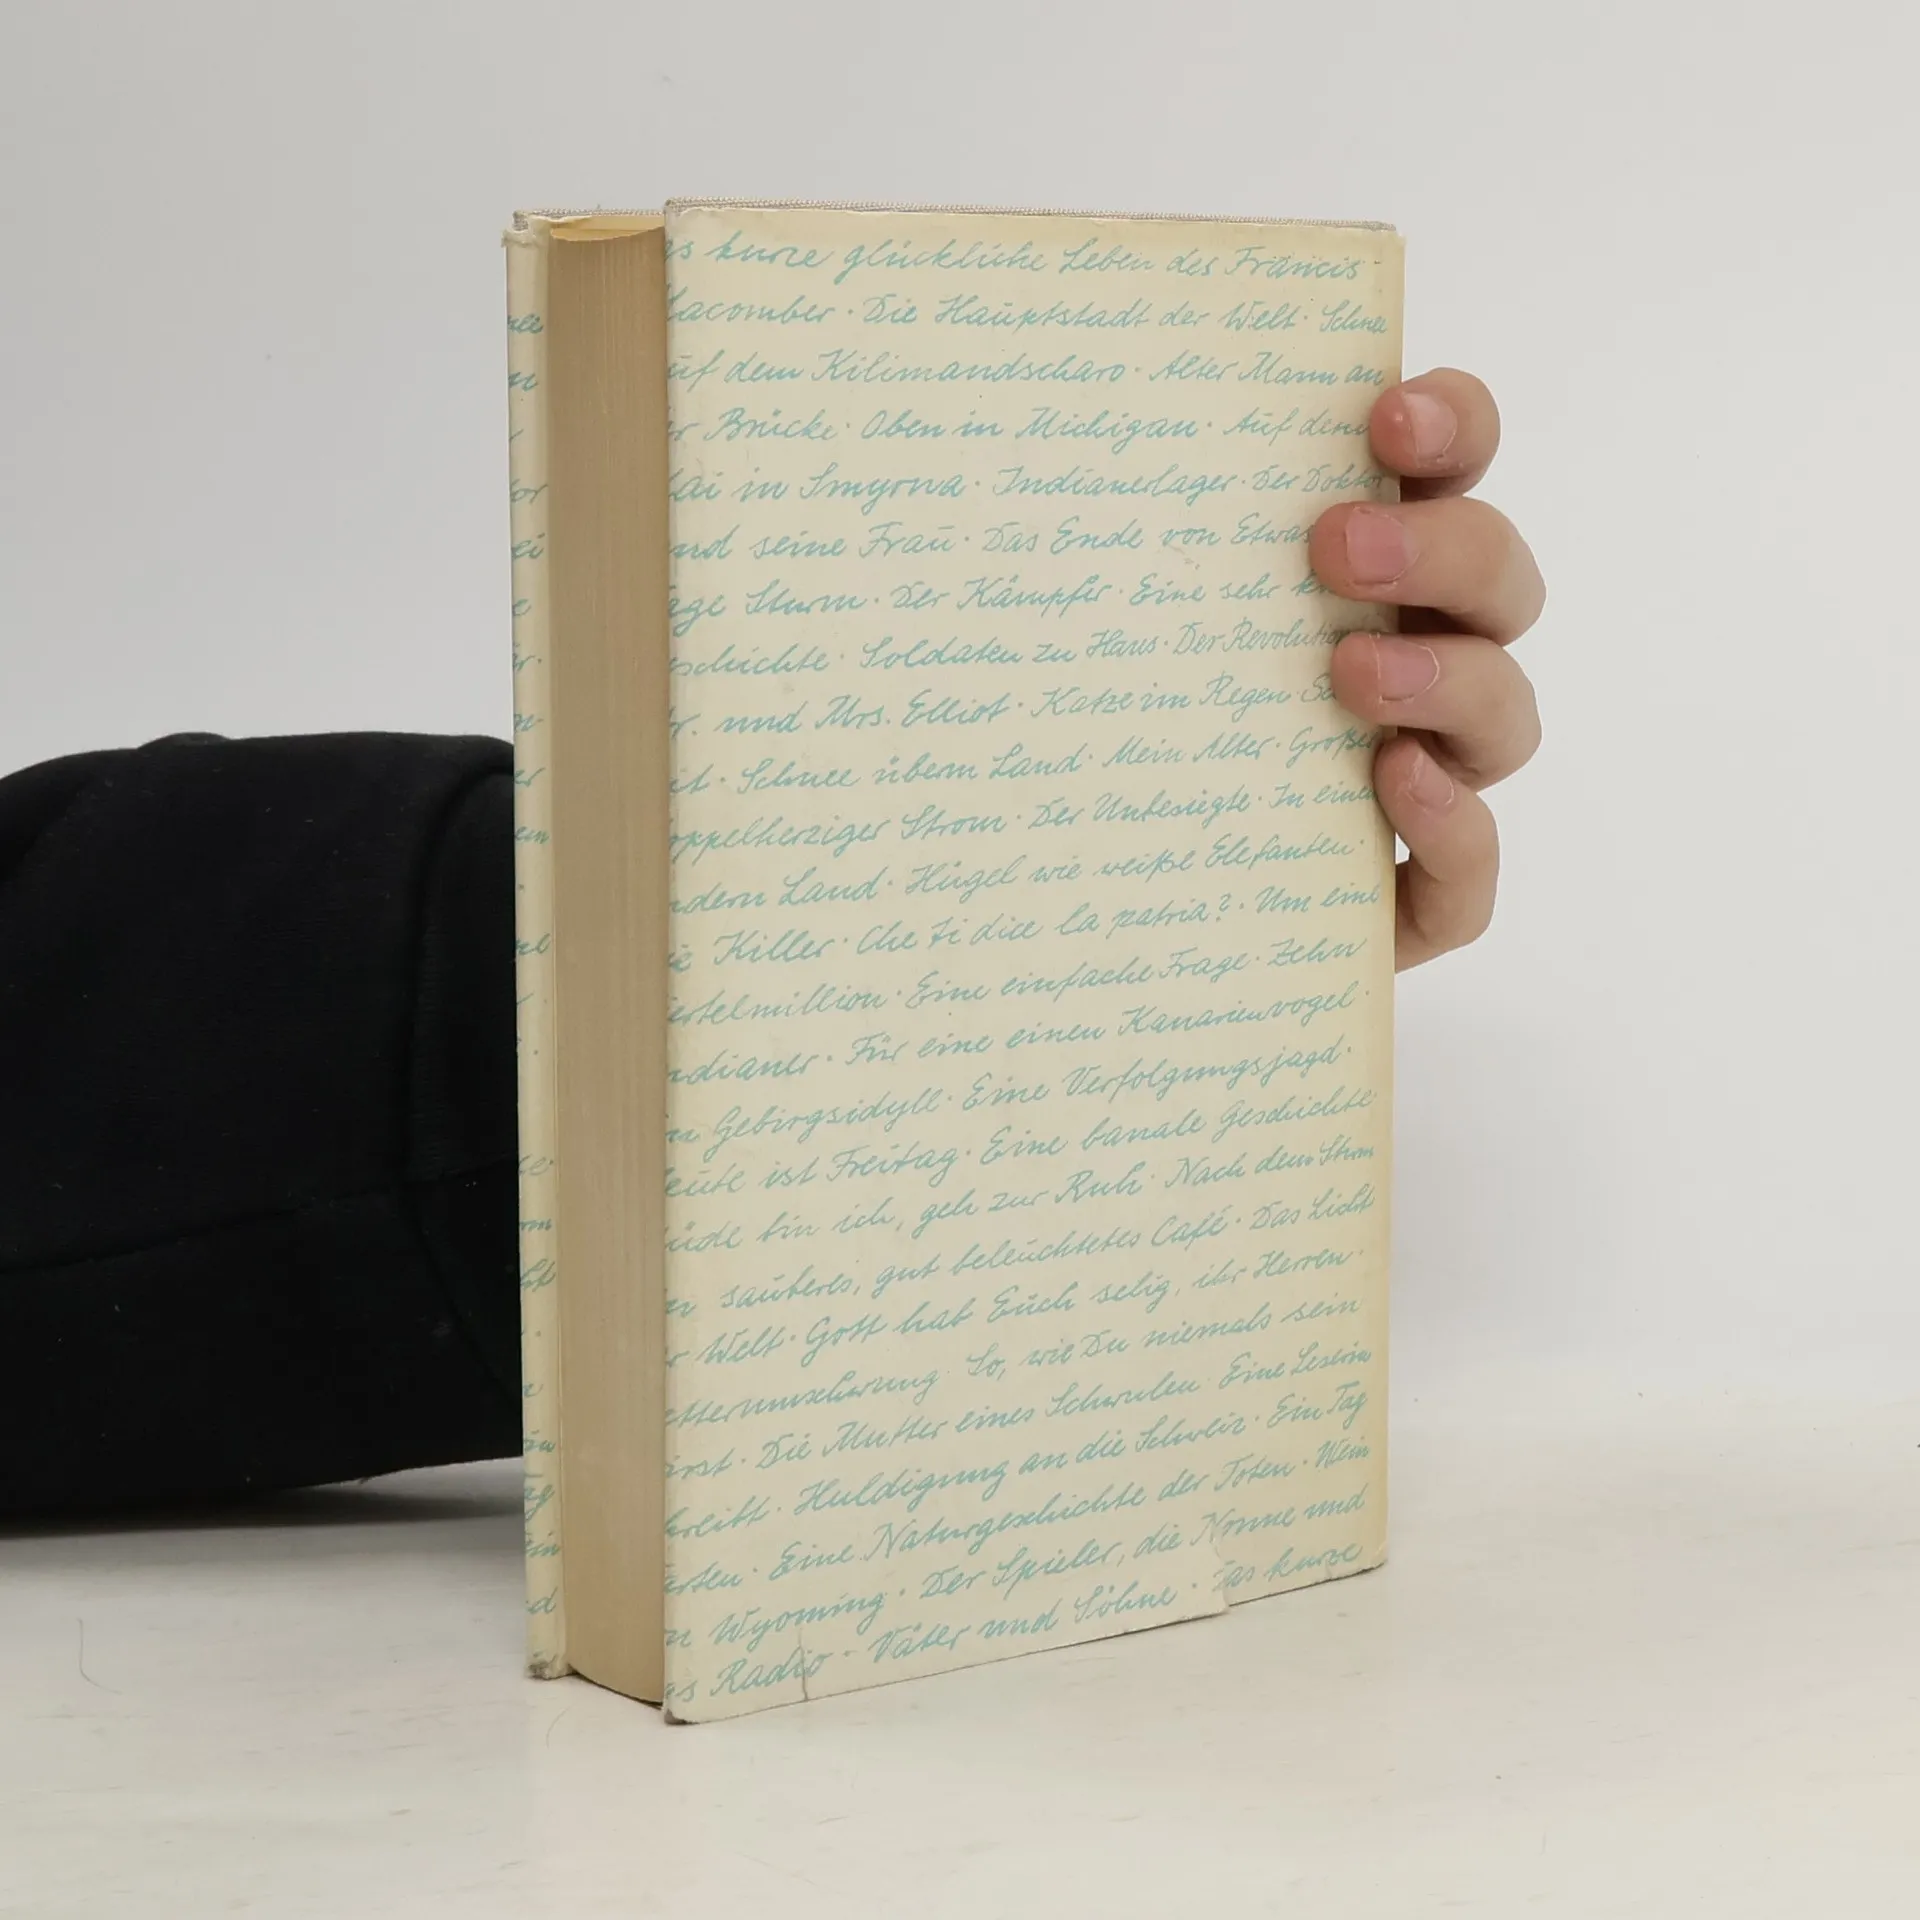 s kurze glückliche Leben des Francis
acomber · Die Hauptstadt der Welt · Schnee
uf dem Kilimandscharo · Alter Mann an
r Brücke · Oben in Michigan · Auf dem
ai in Smyrna · Indianerlager · Der Doktor
nd seine Frau · Das Ende von Etwas
age Sturm · Der Kämpfer · Eine sehr k
schichte · Soldaten zu Haus · Der Revolution
r. und Mrs. Elliot · Katze im Regen ·
it · Schnee überm Land · Mein Alter · Großer
oppelherziger Strom · Der Unbesiegte · In einem
ndern Land · Hügel wie weiße Elefanten ·
e Killer · Che ti dice la patria? · Um eine
ertelmillion · Eine einfache Frage · Zehn
ndianer · Für eine einen Kanarienvogel ·
n Gebirgsidyll · Eine Verfolgungsjagd ·
eute ist Freitag · Eine banale Geschichte
üde bin ich, geh zur Ruh · Nach dem Sturm
n sauberes, gut beleuchtetes Café · Das Licht
r Welt · Gott hab Euch selig, ihr Herren ·
etterumschwung · So, wie Du niemals sein
irst · Die Mutter eines Schwulen · Eine Leserin
hreibt · Huldigung an die Schweiz · Ein Tag
arten · Eine Naturgeschichte der Toten · Wein
n Wyoming · Der Spieler, die Nonne und
as Radio · Väter und Söhne · Das kurze